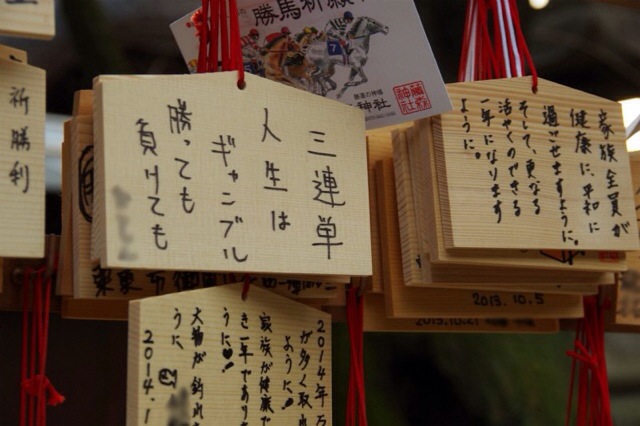 勝馬祈願
神社
藤森
神社
祈勝利
三連単
人生は
ギャンブル
勝っても
負けても
家族全員が
健康に、平和に
過ごせますように。
そして、更なる
活やくのできる
一年になります
ように。
2013.10.5
2013.10.21
2014年万
が多く取れ
ように！
家族が健康で
き一年であり
うに♥！
大物が釣れ
うに
2014.1